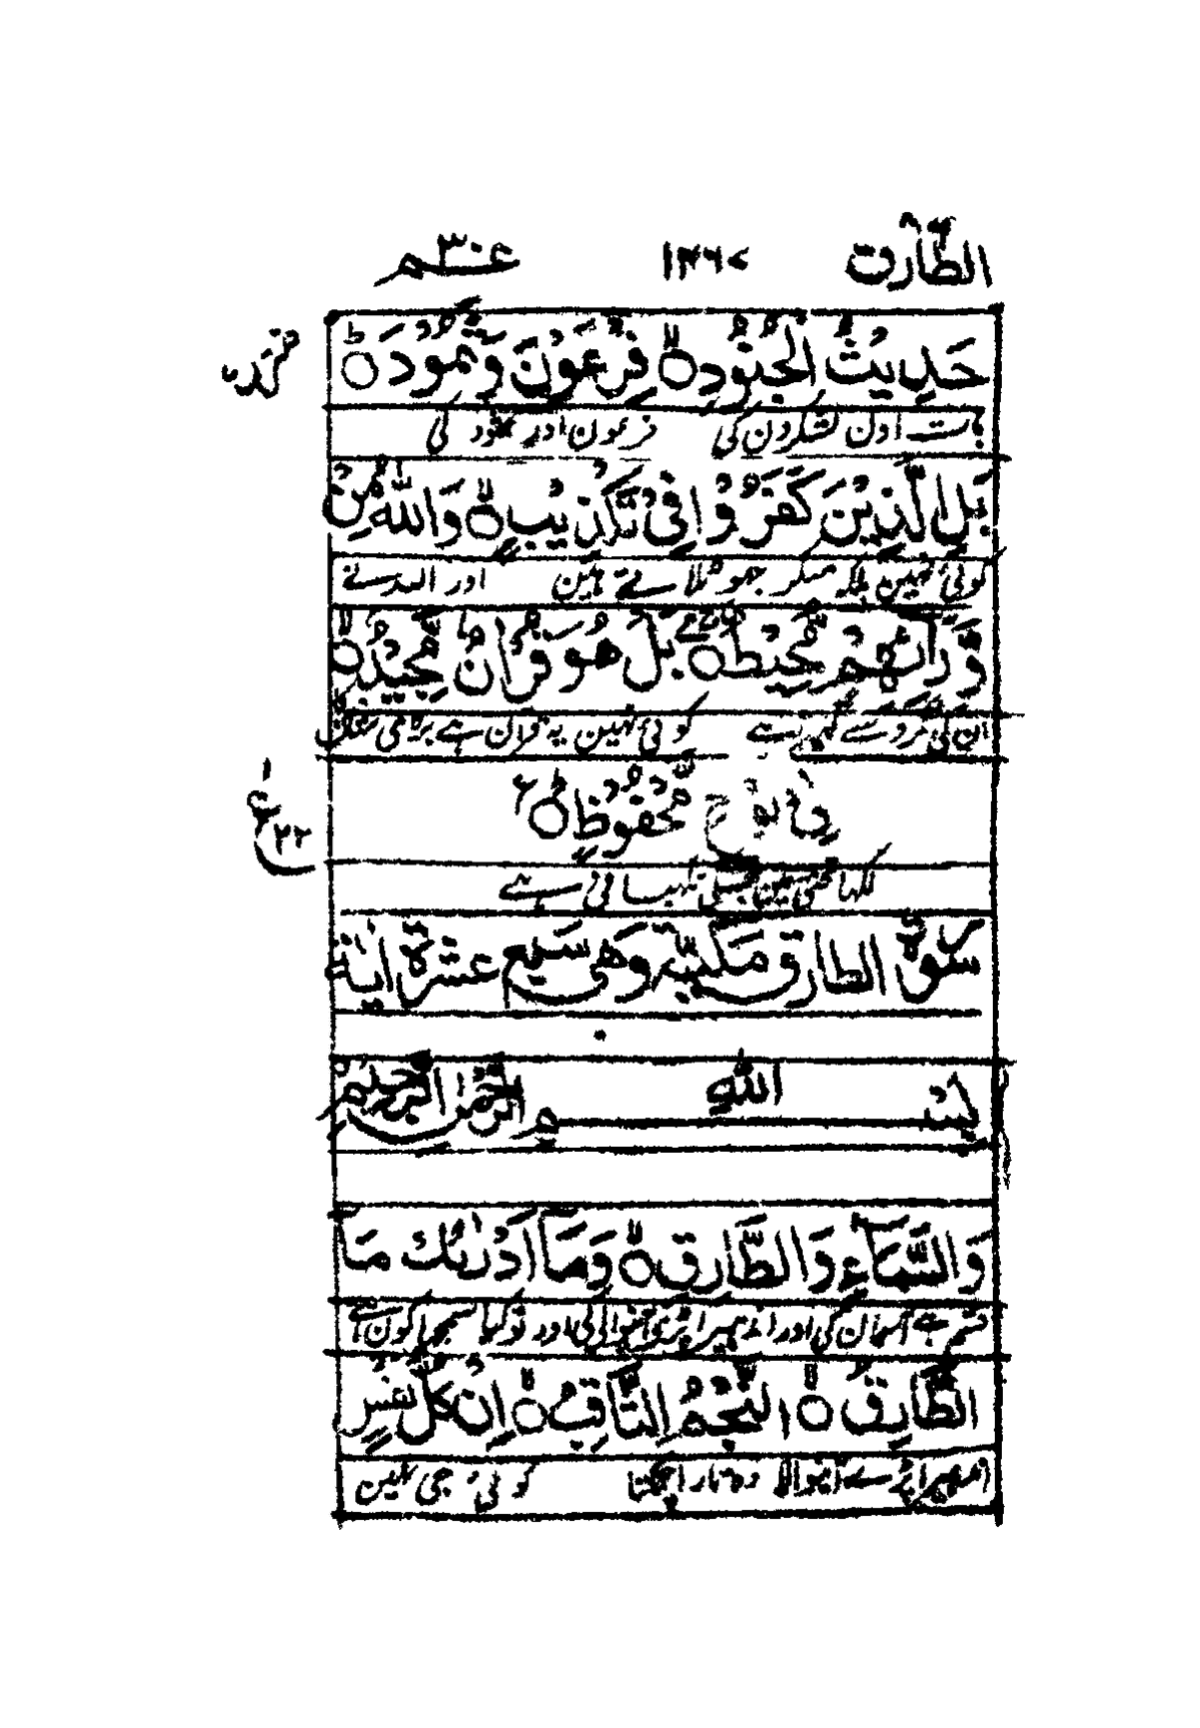 الطّارق ۸۶ ۱۲۶۷ عم ۳۰
حَدِيْثُ الْجُنُوْدِ ۙ فِرْعَوْنَ وَثَمُوْدَ ؕ
بات اون لشکرون کی فرعون اور ثمود کی
بَلِ الَّذِيْنَ كَفَرُوْا فِيْ تَكْذِيْبٍ ۙ وَّاللّٰهُ مِنْ
کوئی نہین بلکہ منکر جھوٹلاتے ہین اور اللہ نے
وَّرَآئِهِمْ مُّحِيْطٌ ۚ بَلْ هُوَ قُرْاٰنٌ مَّجِيْدٌ ۙ
ان کی گرد سے گھیرا ہے کوئی نہین یہ قرآن ہے بڑی
فِيْ لَوْحٍ مَّحْفُوْظٍ ؕ
لکھا تختی مین جسکی نگہبانی ہے
سورة الطارق مكّيّة وهي سبع عشرة اٰية
بسم الله الرحمٰن الرحيم
وَالسَّمَآءِ وَالطَّارِقِ ۙ وَمَآ اَدْرٰىكَ مَا
قسم ہے آسمان کی اور اندھیرا پڑے آنیوالے کی اور تو کیا سمجھا کون ہے
الطَّارِقُ ۙ النَّجْمُ الثَّاقِبُ ۙ اِنْ كُلُّ نَفْسٍ
اندھیرا پڑے آنیوالا وہ تارا چمکتا کوئی جی نہین